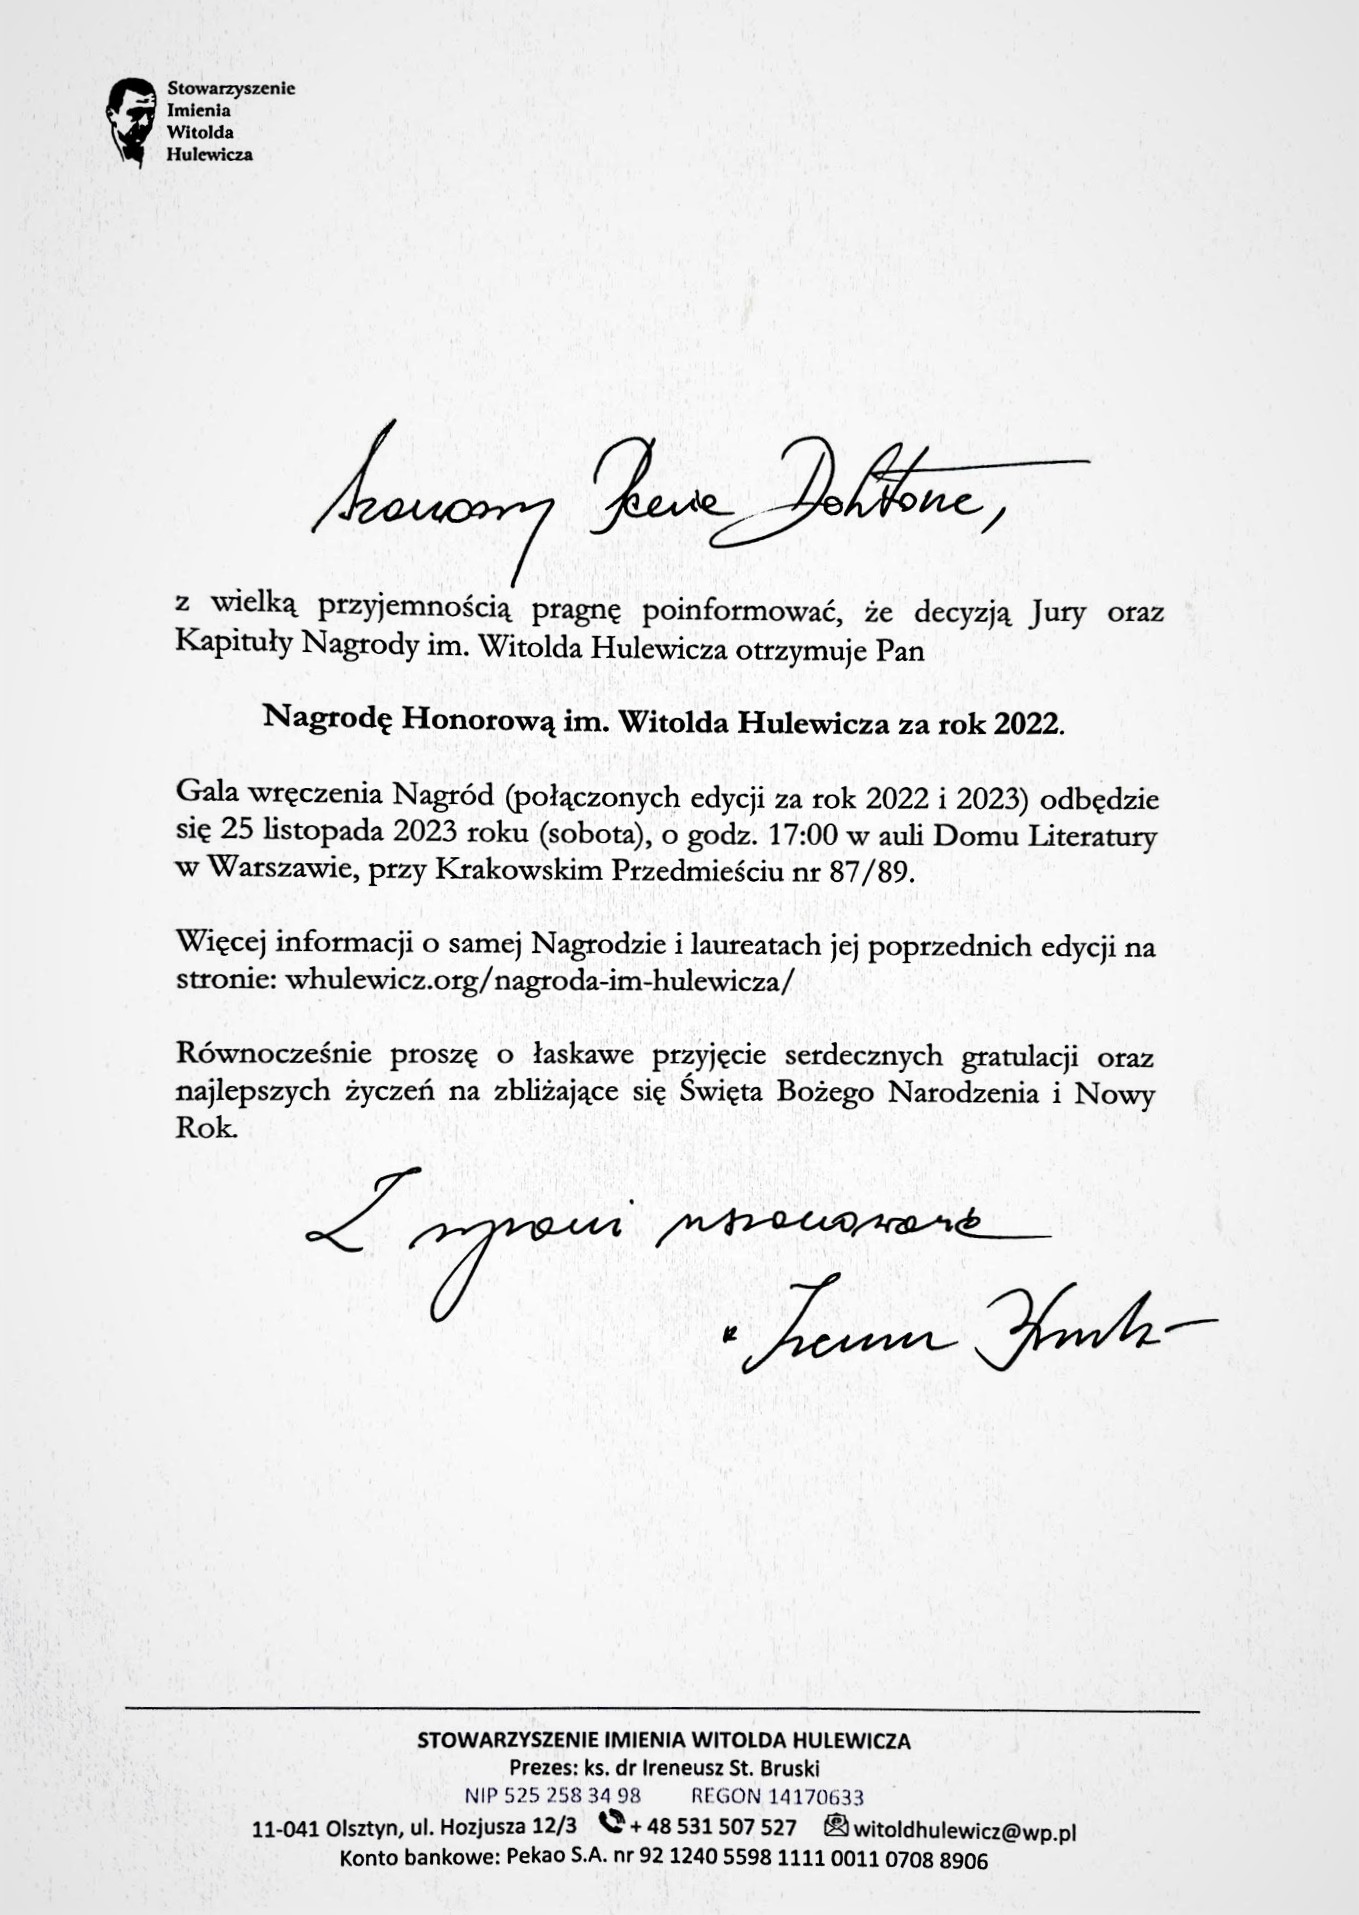 Stowarzyszenie
Imienia
Witolda
Hulewicza
Szanowny Panie Doktorze,
z wielką przyjemnością pragnę poinformować, że decyzją Jury oraz
Kapituły Nagrody im. Witolda Hulewicza otrzymuje Pan
Nagrodę Honorową im. Witolda Hulewicza za rok 2022.
Gala wręczenia Nagród (połączonych edycji za rok 2022 i 2023) odbędzie
się 25 listopada 2023 roku (sobota), o godz. 17:00 w auli Domu Literatury
w Warszawie, przy Krakowskim Przedmieściu nr 87/89.
Więcej informacji o samej Nagrodzie i laureatach jej poprzednich edycji na
stronie: whulewicz.org/nagroda-im-hulewicza/
Równocześnie proszę o łaskawe przyjęcie serdecznych gratulacji oraz
najlepszych życzeń na zbliżające się Święta Bożego Narodzenia i Nowy
Rok.
Z wyrazami uszanowania
Ireneusz Bruski
STOWARZYSZENIE IMIENIA WITOLDA HULEWICZA
Prezes: ks. dr Ireneusz St. Bruski
NIP 525 258 34 98 REGON 14170633
11-041 Olsztyn, ul. Hozjusza 12/3 + 48 531 507 527 witoldhulewicz@wp.pl
Konto bankowe: Pekao S.A. nr 92 1240 5598 1111 0011 0708 8906